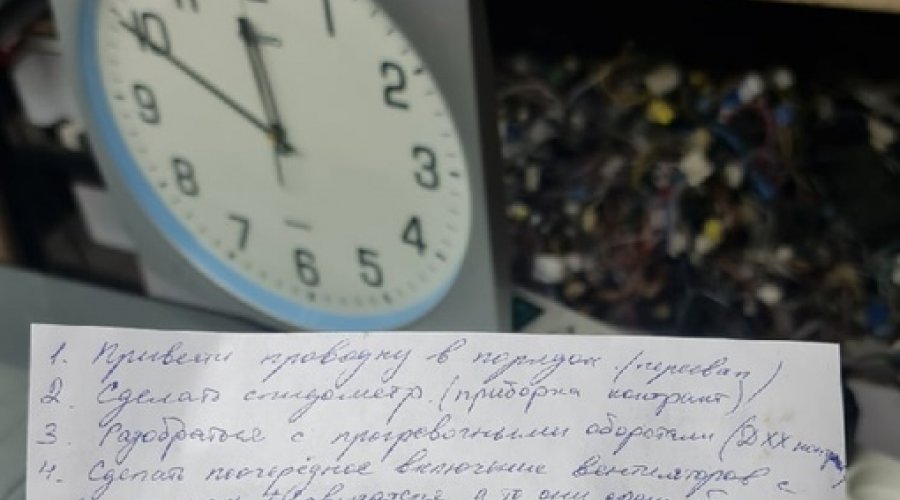 10
11
1
2
9
3
8
4
7
6
5
1. Привести проводку в порядок (перевал)
2. Сделать спидометр. (приборка контракт)
3. Разобраться с прогревочными оборотами (ДХХ
4. Сделать поочерёдное включение вентиляторов с
а то они